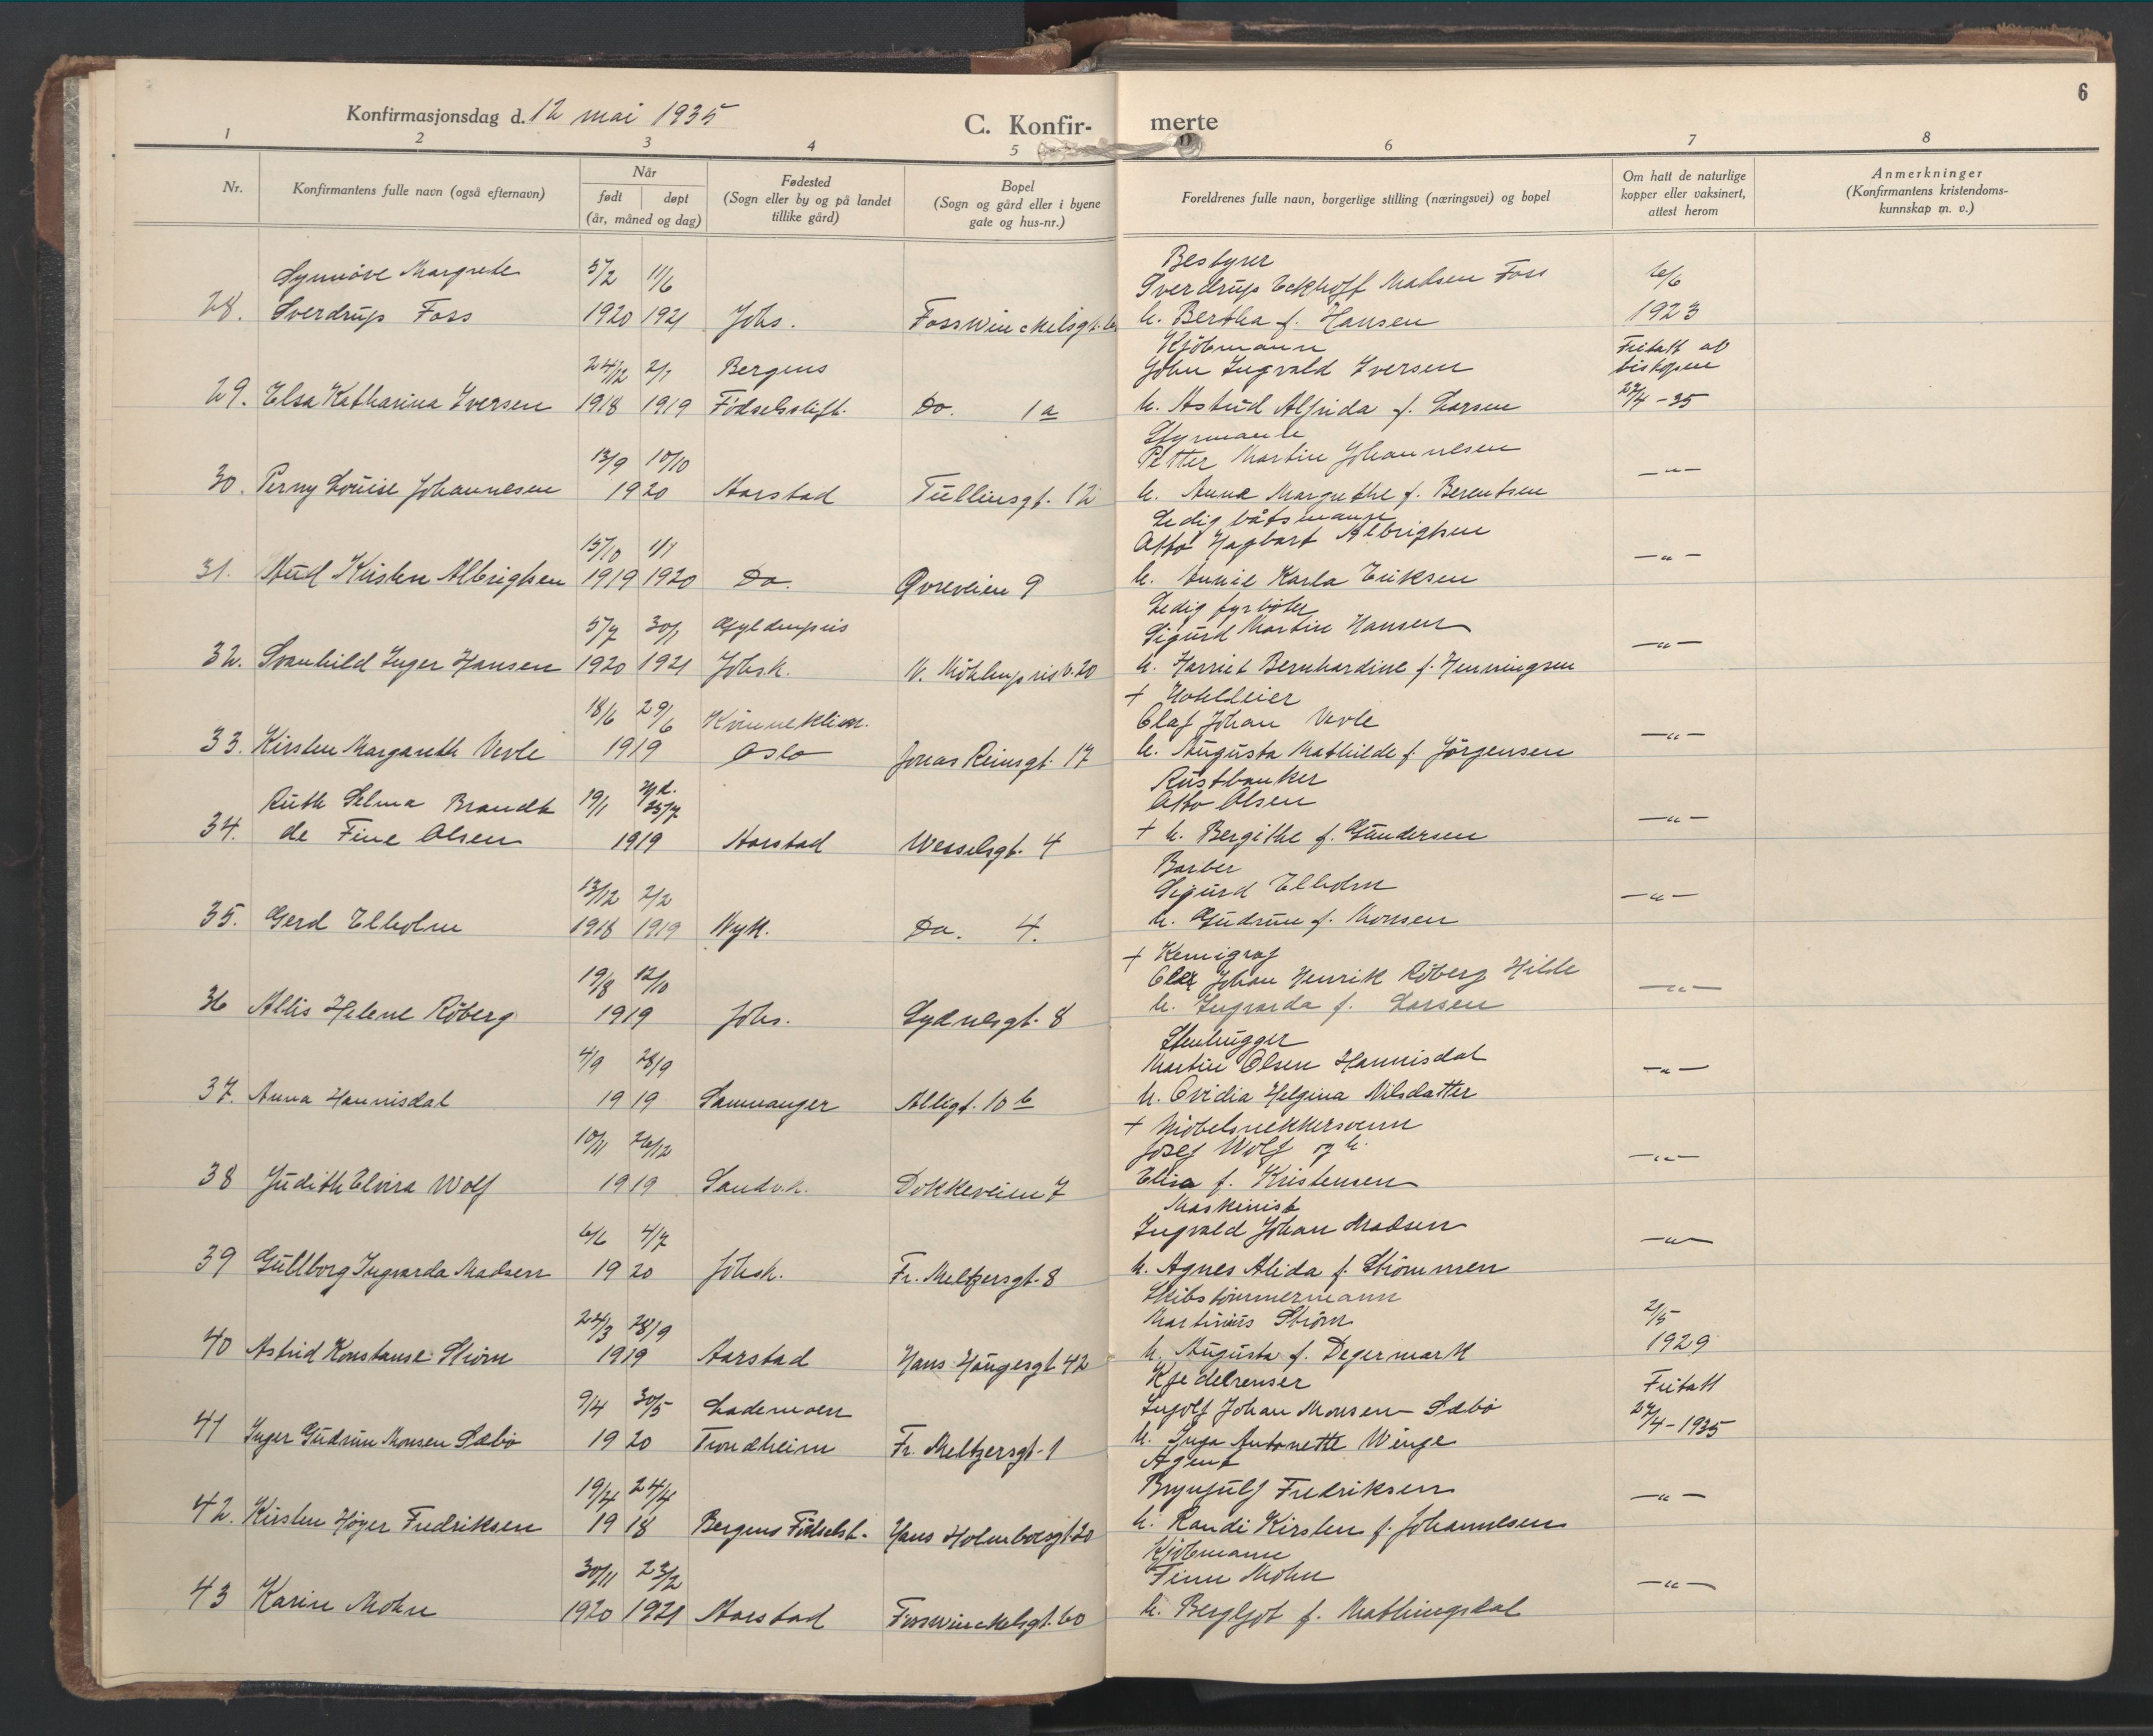 6
Konfirmasjonsdag d. 12 mai 1935
C. Konfir- merte
1 2 3 4 5 6 7 8
Nr.
Konfirmantens fulle navn (også efternavn)
Når
født døpt
(år, måned og dag)
Fødested
(Sogn eller by og på landet
tillike gård)
Bopel
(Sogn og gård eller i byene
gate og hus-nr.)
Foreldrenes fulle navn, borgertige stilling (næringsvei) og bopel
Om hatt de naturlige
kopper eller vaksinert,
attest herom
Anmerkninger
(Konfirmantens kristendoms-
kunnskap m. v.)
Bestyrer
Synnöve Margrete 5/2 11/6 Sverdrup Eckhoff Madsen Foss
28. Sverdrup Foss 1920 1921 Johs. Fosswinckelsgt. h. Bertha f. Hansen 1923
Kjöbmann Fritatt av
24/12 2/1 Bergens John Ingvald Iversen biskopen
29. Elsa Katharina Iversen 1918 1919 Födselsstift. Do. 1a h. Astrid Alfrida f. Larsen 27/4-35
Styrmann
13/9 10/10 Petter Martin Johannesen
30. Perny Louise Johannesen 1920 Aarstad Tullinsgt. 12 h. Anna Margrethe f. Berentsen -"-
Ledig båtsmann
15/10 1/1 Otto Hagbart Albrigtsen
31. Aud Kirsten Albrigtsen 1919 1920 Do. Øvreveien 9 h. Annie Karla Eriksen -"-
Ledig fyrböter
5/7 30/1 Gyldenpris Sigurd Martin Hansen
32. Svanhild Inger Hansen 1920 1921 Johsk. N. Möhlenprisv. 20 h. Harriet Bernhardine f. Henningsen -"-
+ Hotelleier
18/6 29/6 Kvinneklin. Olaf Johan Vevle
33. Kirsten Margareth Vevle 1919 Oslo Jonas Reinsgt. 17 h. Augusta Mathilde f. Jörgensen -"-
Rustbanker
Ruth Selma Brandt 19/1 25/7 Otto Olsen
34. de Fine Olsen 1919 Aarstad Wesselsgt. 4 + h. Bergithe f. Gundersen -"-
Barber
13/12 2/2 Sigurd Elholm
35. Gerd Elholm 1918 1919 Nyk. Do. 4. h. Gudrun f. Monsen -"-
+ Kemigraf
19/8 12/10 Johan Henrik Röberg Hilde
36 Allis Helene Röberg 1919 Johs. Sydnesgt. 8 h. Ingvarda f. Larsen -"-
Stenhugger
4/9 28/9 Martin Olsen Hannisdal
37. Anna Hannisdal 1919 Samnanger Allégt. 10 b h. Ovidia Helgina Nilsdatter -"-
+ Möbelsnekkersvenn
10/11 26/12 Josef Wolf og h.
38 Judith Elvira Wolf 1919 Sandvk. Dokkeveien 7 Elisa f. Kristensen -"-
Maskinist
6/6 4/7 Ingvald Johan Madsen
39 Gullborg Ingvarda Madsen 1920 Johsk. Fr. Meltzersgt. 8 h. Agnes Alida f. Strömmen -"-
Skibstömmermann
24/3 28/9 Martinius Ström 2/5
40 Astrid Konstanse Ström 1919 Aarstad Hans Haugesgt 42 h. Augusta f. Degermark 1929
Kjedelrenser Fritatt
9/4 30/5 Lademoen Ingolf Johan Monsen Sæbö
41 Inger Gudrun Monsen Sæbö 1920 Trondheim Fr. Meltzersgt. 1 h. Inga Antonette Winge 27/4-1935
Agent
19/4 24/4 Brynjulf Fredriksen
42. Kirsten Høyer Fredriksen 1918 Bergens Födselst. Hans Holmboesgt 20 h. Randi Kirsten f. Johannesen -"-
Kjöbmann
30/11 23/2 Finn Mohn
43 Karin Mohn 1920 1921 Aarstad Fosswinckelsgt. 60 h. Bergljot f. Mathingsdal -"-